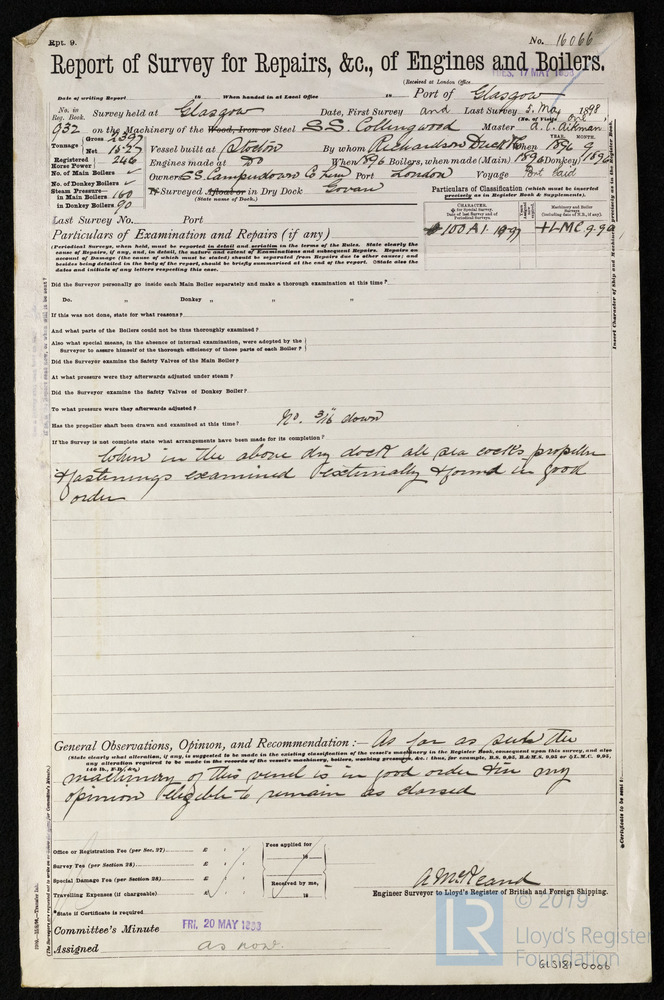 Rpt. 9.
No. 16066
Report of Survey for Repairs, &c., of Engines and Boilers.
(Received at London Office TUES. 17 MAY 1898
Date of writing Report 18 When handed in at Local Office 18 Port of Glasgow
No. in Reg. Book. Survey held at Glasgow Date, First Survey and Last Survey 5. May 1898
(No. of Visits One)
932 on the Machinery of the Wood, Iron or Steel S.S. Collingwood Master A. C. Aikman
Tonnage Gross 2397
Net 1527 Vessel built at Stockton By whom Richardson Duck & Co When 1896 9
YEAR. MONTH.
Registered Horse Power 246 Engines made at Do When 1896 Boilers, when made (Main) 1896 Donkey 1896
No. of Main Boilers ✓ Owners S.S. Camperdown Co Lim Port London Voyage Port Said
No. of Donkey Boilers ✓
Steam Pressure in Main Boilers 160 If Surveyed Afloat or in Dry Dock Govan
(State name of Dock.)
in Donkey Boilers 90
Particulars of Classification (which must be inserted precisely as in Register Book & Supplements).
CHARACTER.
* for Special Survey.
Date of last Survey and of Periodical Surveys.
Machinery and Boiler Surveys (including date of N.B., if any).
100 A1 +LMC 9.96
Last Survey No. Port
Particulars of Examination and Repairs (if any)
(Periodical Surveys, when held, must be reported in detail and seriatim in the terms of the Rules. State clearly the
cause of Repairs, if any, and, in detail, the nature and extent of Examinations and subsequent Repairs. Repairs on
account of Damage (the cause of which must be stated) should be separated from Repairs due to other causes; and
besides being detailed in the body of the report, should be briefly summarised at the end of the report. State also the
dates and initials of any letters respecting this case.
Did the Surveyor personally go inside each Main Boiler separately and make a thorough examination at this time?
Do. " Donkey " " "
If this was not done, state for what reasons?
And what parts of the Boilers could not be thus thoroughly examined?
Also what special means, in the absence of internal examination, were adopted by the
Surveyor to assure himself of the thorough efficiency of those parts of each Boiler?
Did the Surveyor examine the Safety Valves of the Main Boiler?
At what pressure were they adjusted under steam?
Did the Surveyor examine the Safety Valves of Donkey Boiler?
To what pressure were they afterwards adjusted?
Has the propeller shaft been drawn and examined at this time? No. 3/16" down
If the Survey is not complete state what arrangements have been made for its completion?
When in the above dry dock all sea cocks, propeller
& fastenings examined externally & found in good
order
General Observations, Opinion, and Recommendation:— As far as seen the
(State clearly what alteration, if any, is suggested to be made in the existing classification of the vessel's machinery in the Register Book, consequent upon this survey, and also
any alteration required to be made in the records of the vessel's machinery, boilers, working pressure, &c.: thus, for example, B.S. 9,95, B.&M.S. 9,95 or L.M.C. 9,95,
140 lb., F.D., &c.)
machinery of this vessel is in good order & in my
opinion eligible to remain as classed
Office or Registration Fee (per Sec. 27) £
Survey Fee (per Section 28) £
Special Damage Fee (per Section 28) £
Travelling Expenses (if chargeable) £
Fees applied for
18
Received by me,
18
Engineer Surveyor to Lloyd's Register of British and Foreign Shipping.
*State if Certificate is required
Committee's Minute FRI. 20 MAY 1898
Assigned as now
© 2019
LR Lloyd's Register
Foundation
GLS181-0006